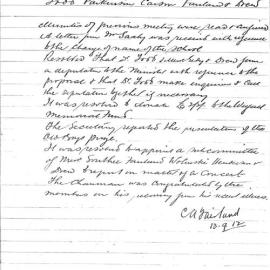 Dobb Parkinson Carson Fairland & Drew
Minutes of previous meeting were read and confirmed
A letter from Mr was received with reference
to the change of name of the school
Resolved That Dr Dobb & Drew form
a deputation to the Minister with reference to the
proposal & that Dr Dobb make enquiries & call
the deputation together if necessary
It was resolved to donate to the
Memorial Fund
The Secretary reported the presentation of the
Old Boys Prize
It was resolved to appoint a subcommittee
of Fairland &
Drew to report on matter of a Concert
The Chairman was Congratulated by the
members on his recovery from his recent illness.
C A Fairland
12